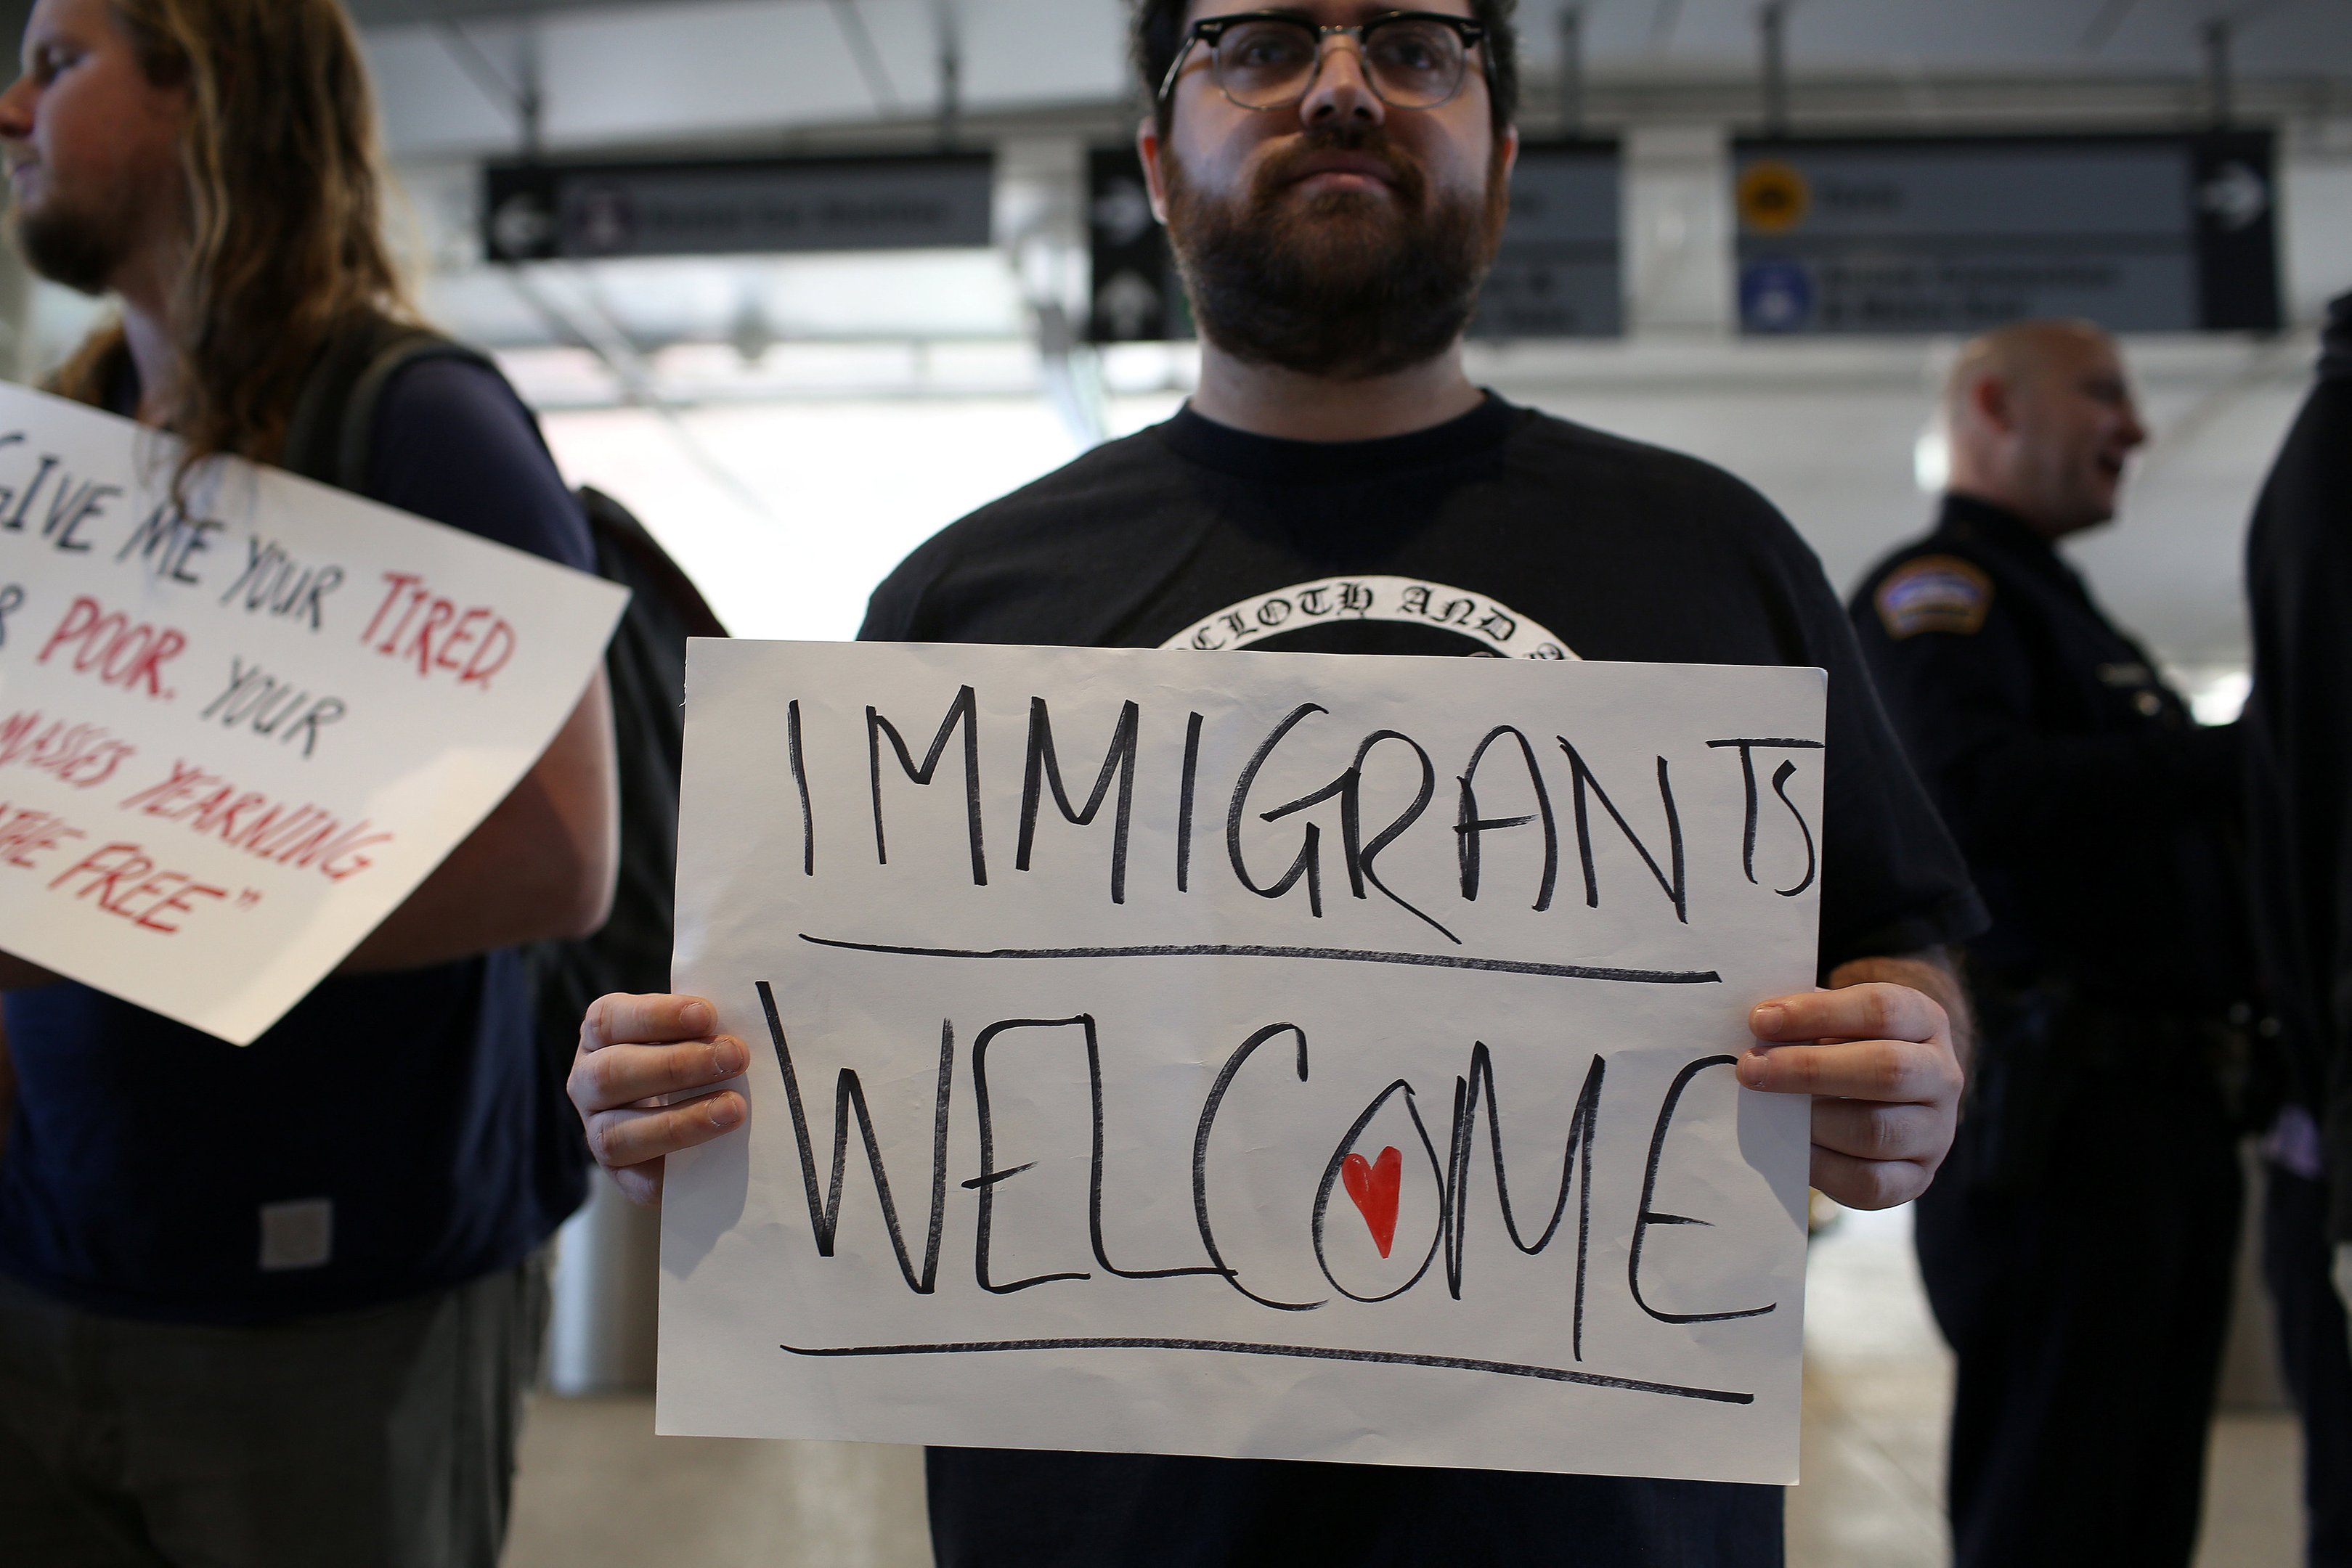 GIVE ME YOUR TIRED.
POOR. YOUR
MASSES YEARNING
THE FREE”
CLOTH AND
IMMIGRANTS
WELCOME